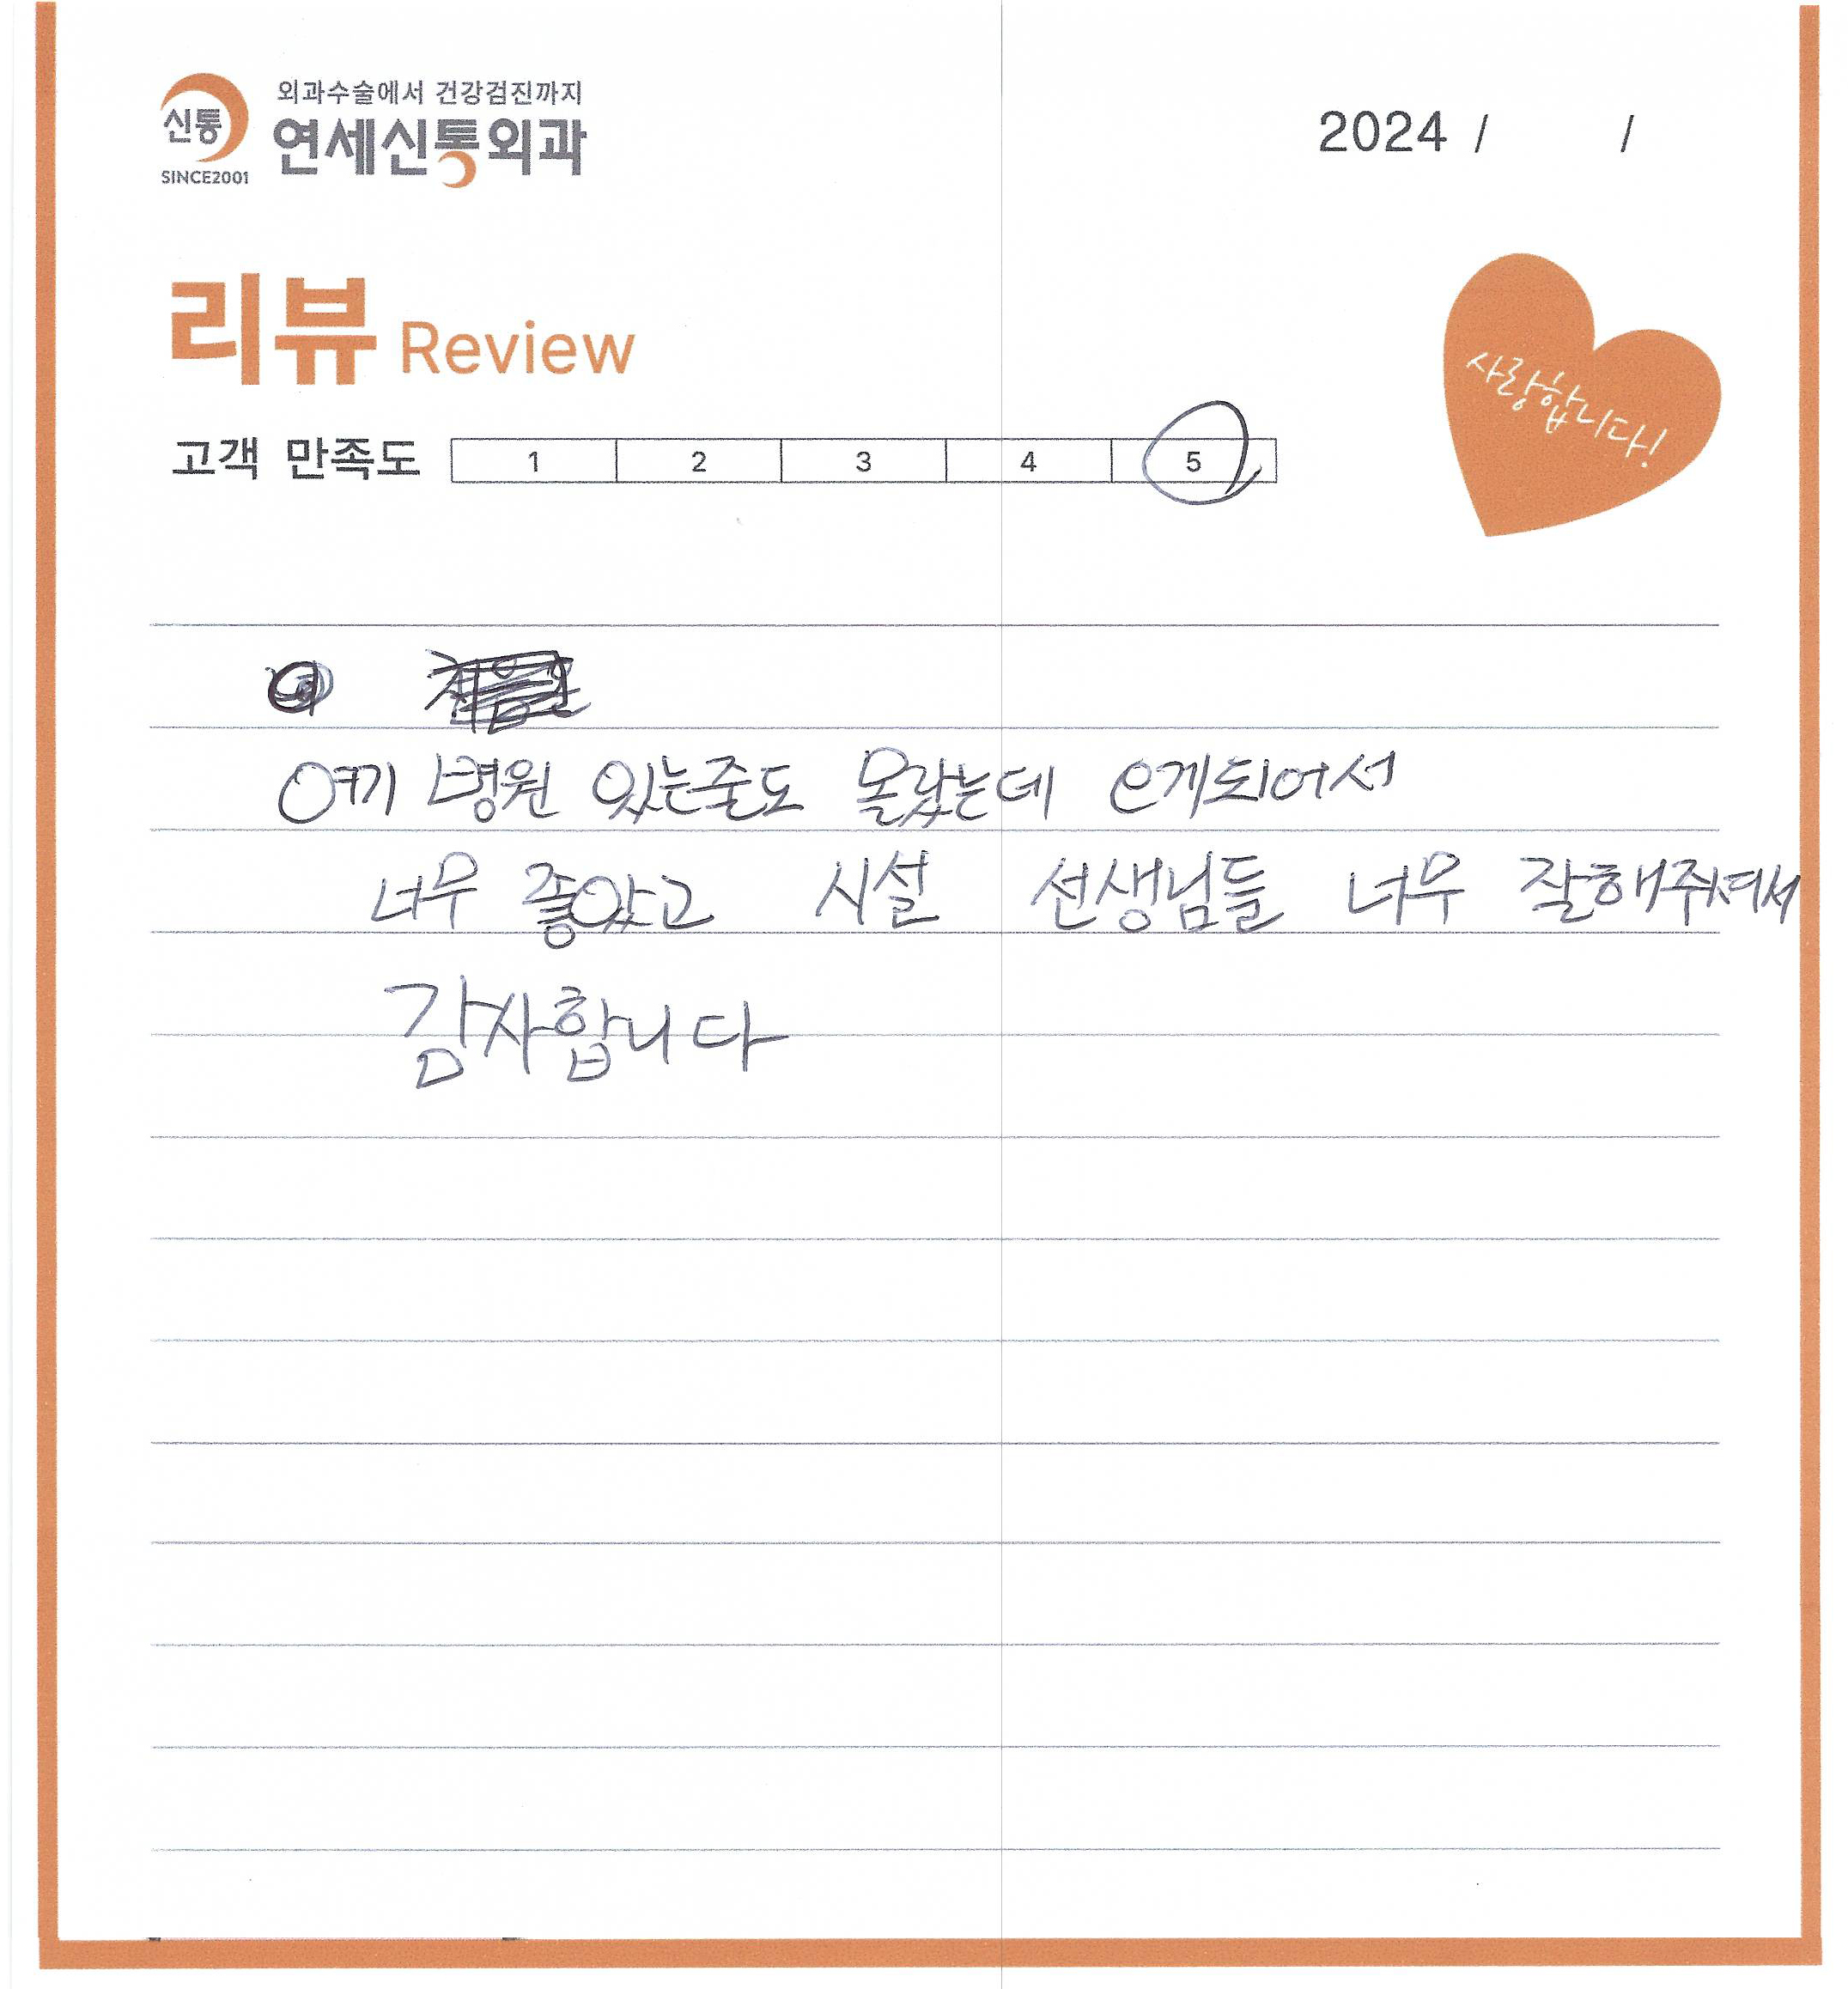 신통
SINCE2001
외과수술에서 건강검진까지
연세신통외과
2024 / /
리뷰 Review
사랑합니다!
고객 만족도 1 2 3 4 5
여기 병원 있는줄도 몰랐는데 오게되어서
너무 좋았고 시설 선생님들 너무 잘해주셔서
감사합니다